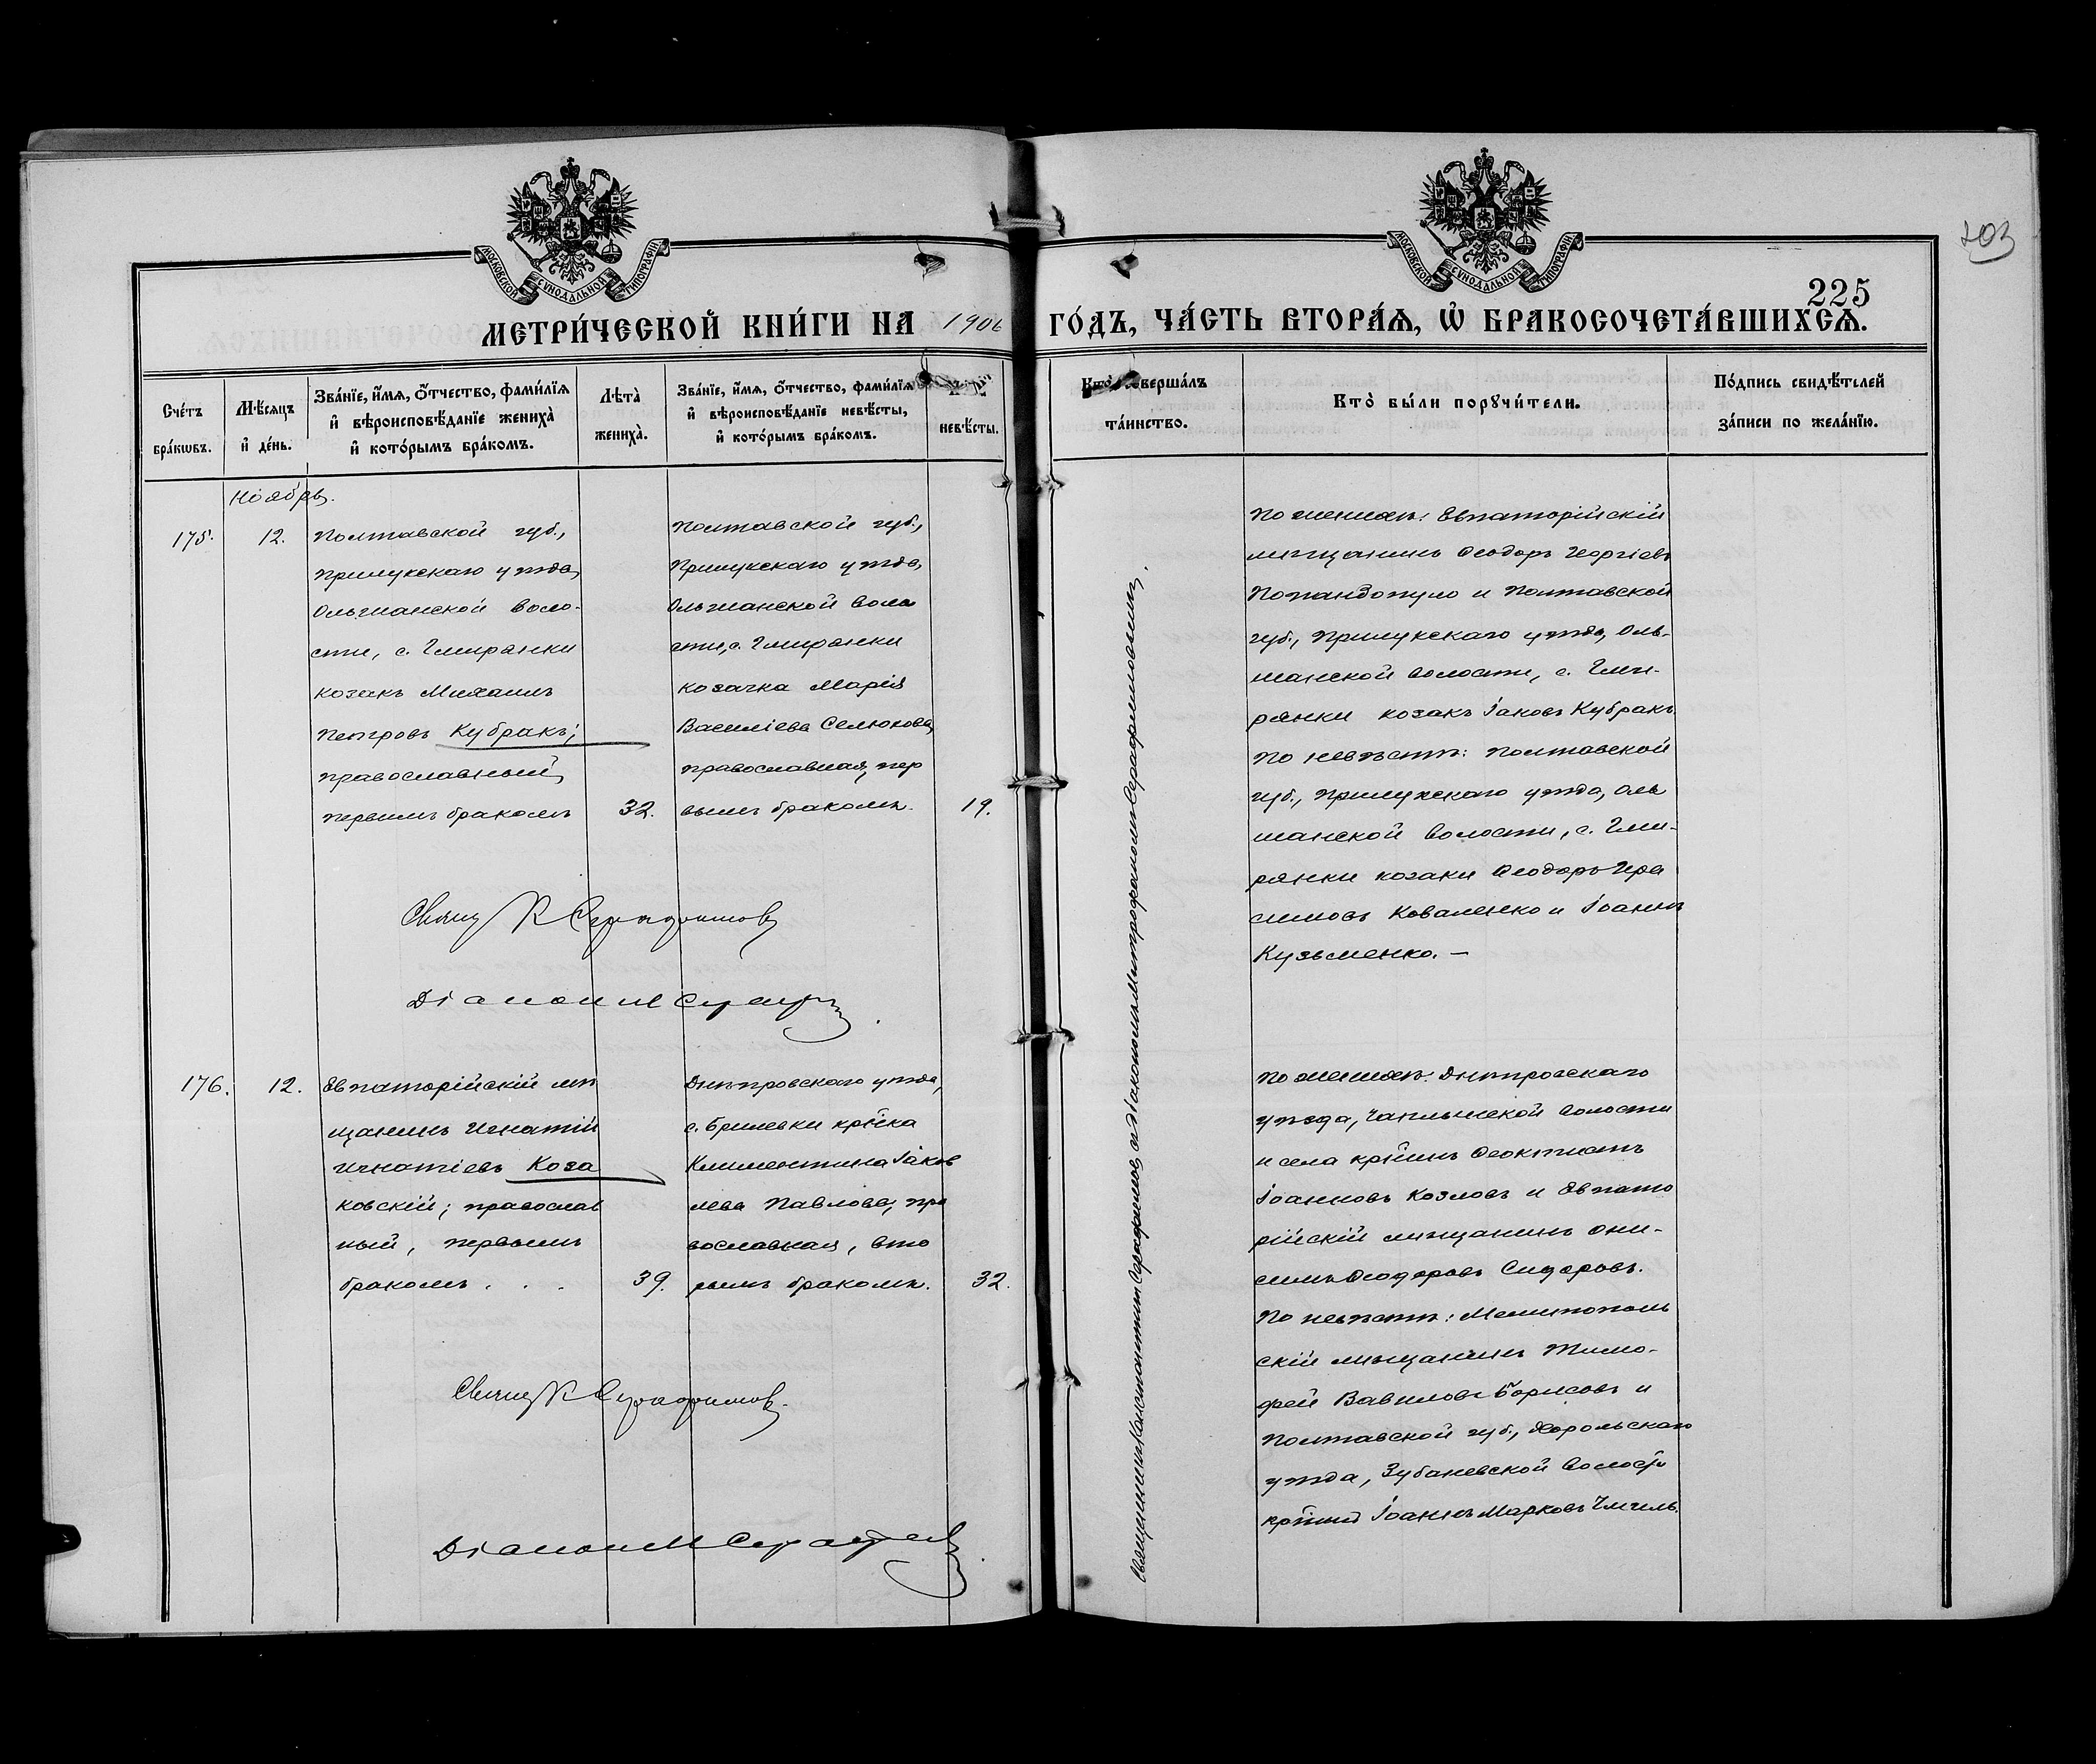 МОСКОВСКОЙ СѴНОДАЛЬНОЙ ТИПОГРАФІИ
МОСКОВСКОЙ СѴНОДАЛЬНОЙ ТИПОГРАФІИ
203
225
МЕТРИ́ЧЕСКОЙ КНИ́ГИ НА 1906 ГО́ДЪ, ЧА́СТЬ ВТОРА́Ѧ, Ѡ҆ БРАКОСОЧЕТА́ВШИХСѦ.
Сче́тъ
бра́кѡвъ.
Мѣ́сяцъ
и҆ де́нь.
Зва́нїе, и҆́мѧ, ѻ҆́тчество, фами́лїѧ
и҆ вѣроисповѣ́данїе жениха̀
и҆ кото́рымъ бра́комъ.
Лѣта̀
жениха̀.
Зва́нїе, и҆́мѧ, ѻ҆́тчество, фами́лїѧ
и҆ вѣроисповѣ́данїе невѣ́сты,
и҆ кото́рымъ бра́комъ.
невѣ́сты.
Кто̀ соверша́лъ
та́инство.
Кто̀ бы́ли порꙋчи́тели.
По́дпись свидѣ́телей
за́писи по жела́нїю.
Ноябрь.
175.
12.
Полтавской губ.,
Прилукскаго уѣзда,
Ольшанской воло-
сти, с. Гмирянки
козакъ Михаилъ
Петровъ Кубракъ;
православный,
первымъ бракомъ
32.
Полтавской губ.,
Прилукскаго уѣзда,
Ольшанской воло
сти, с. Гмирянки
козачка Марія
Василіева Селюкова,
православная, пер
вымъ бракомъ.
19.
По женихѣ: Евпаторійскій
мѣщанинъ Ѳеодоръ Георгіевъ
Попандопуло и Полтавской
губ., Прилукскаго уѣзда, Оль-
шанской волости, с. Гми-
рянки козакъ Іаковъ Кубракъ.
По невѣстѣ: Полтавской
губ., Прилукскаго уѣзда, Оль
шанской волости, с. Гми-
рянки козаки Ѳеодоръ Гера
симовъ Коваленко и Іоаннъ
Кузьменко. —
Свящ К Серафимовъ
Діаконъ М Серафи
176.
12.
Евпаторійскій мѣ
щанинъ Игнатій
Игнатіевъ Коза
ковскій; православ
ный, первымъ
бракомъ . . .
39.
Днѣпровскаго уѣзда,
с. Брилевки кр-ка
Климентина Іаков
лева Павлова, пра
вославная, вто
рымъ бракомъ.
32.
По женихѣ: Днѣпровскаго
уѣзда, Чаплынской волости
и села кр-нинъ Ѳеоктистъ
Іоанновъ Козловъ и Евпато
рійскій мѣщанинъ Они-
симъ Ѳеодоровъ Сидоровъ.
По невѣстѣ: Мелитополь
скій мѣщанинъ Тимо-
фей Вавиловъ Борисовъ и
Полтавской губ., Хорольскаго
уѣзда, Зубаневской волости
кр-нинъ Іоаннъ Марковъ Чмиль.
Свящ К Серафимовъ.
Діаконъ М Серафи
Священникъ Константинъ Серафимовъ съ діакономъ Митрофаномъ Серафимовымъ.